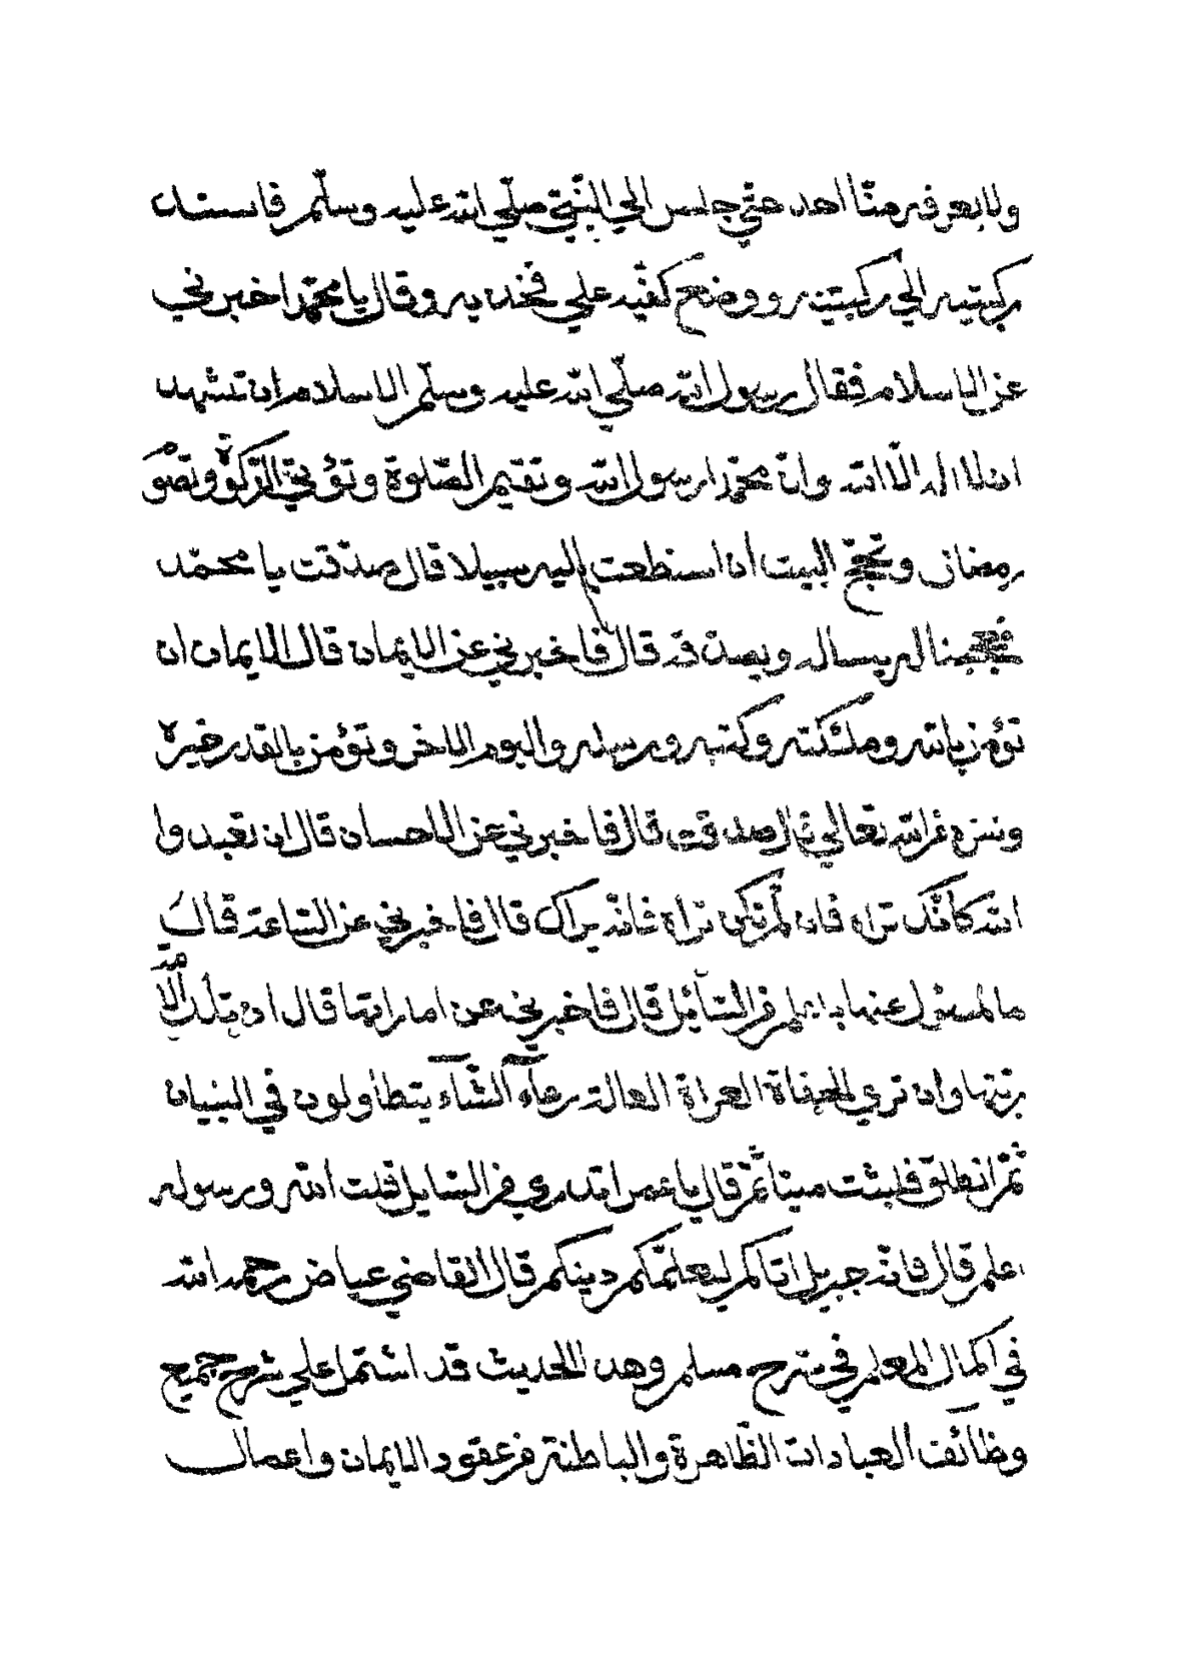 ولا يعرفه منّا احد حتّي جلس الي النّبيّ صلّي الله عليه وسلّم فاسند
ركبتيه الي ركبتيه ووضع كفّيه علي فخذيه وقال يا محمّد اخبرني
عن الاسلام فقال رسول الله صلّي الله عليه وسلّم الاسلام ان تشهد
ان لا اله الّا الله وانّ محمّدا رسول الله وتقيم الصّلوة وتؤتي الزّكوة وتصوم
رمضان وتحجّ البيت ان استطعت اليه سبيلا قال صدقت يا محمّد
فعجبنا له يساله ويصدّقه قال فاخبرني عن الايمان قال الايمان ان
تؤمن بالله وملئكته وكتبه ورسله واليوم الاخر وتؤمن بالقدر خيره
وشرّه من الله تعالي قال صدقت قال فاخبرني عن الاحسان قال ان تعبدوا
الله كانّك تراه فان لم تكن تراه فانّه يراك قال فاخبرني عن السّاعة قال
ما المسئول عنها باعلم من السّائل قال فاخبرني عن اماراتها قال ان تلد الامة
ربّتها وان تري الحفاة العراة العالة رعآء الشّآء يتطاولون في البنيان
ثمّ انطلق فلبثت مليّا ثمّ قال يا عمر اتدري من السّايل قلت الله ورسوله
اعلم قال فانّه جبريل اتاكم ليعلّمكم دينكم قال القاضي عياض رحمه الله
في اكمال المعلم في شرح مسلم وهذا الحديث قد اشتمل علي شرح جميع
وظائف العبادات الظّاهرة والباطنة من عقود الايمان واعمال